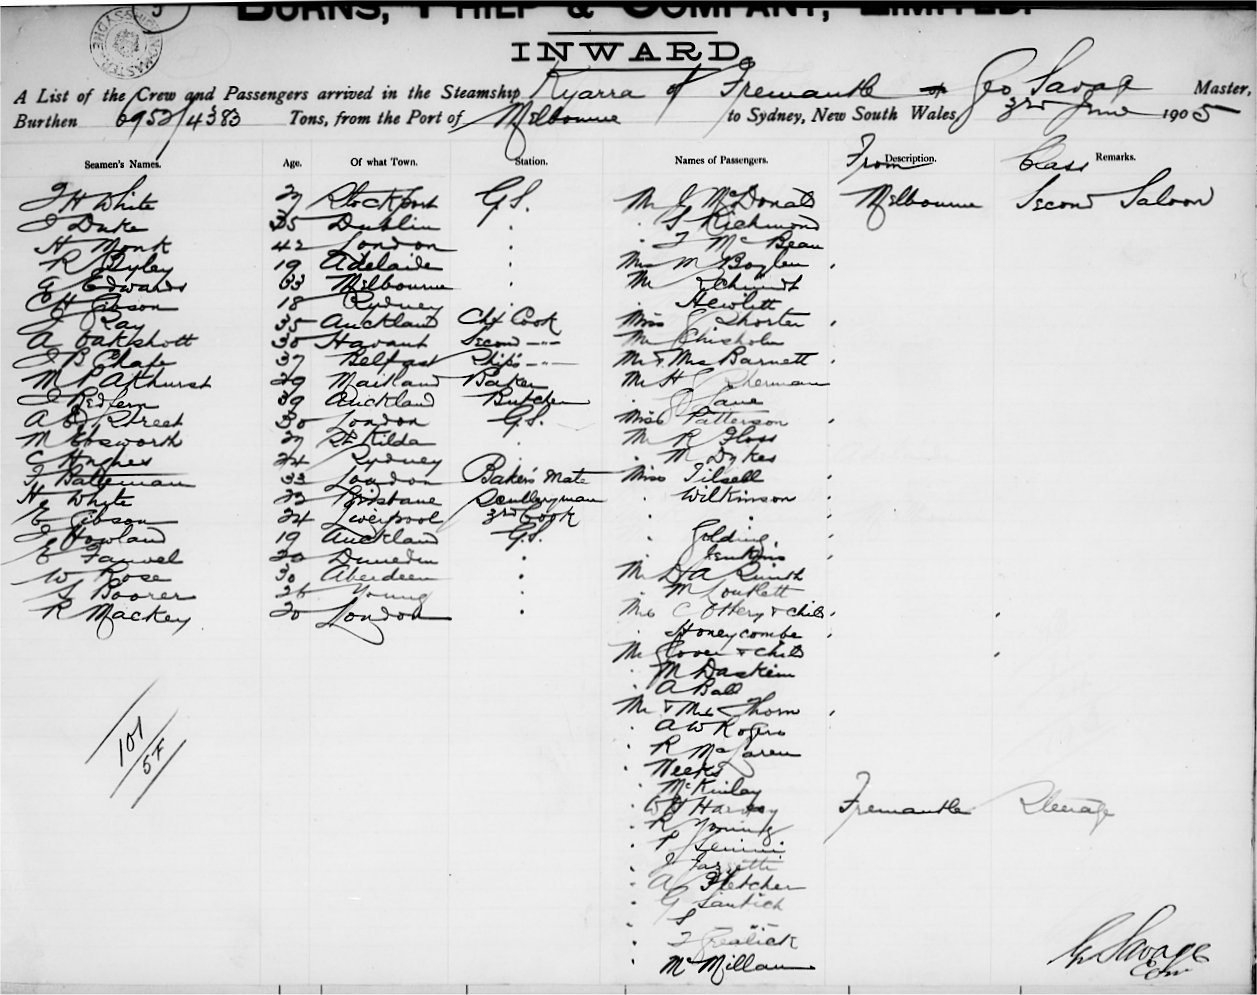 BURNS, PHILP & COMPANY, LIMITED.
INWARD.
A List of the Crew and Passengers arrived in the Steamship Kyarra of Fremantle Geo Savage Master,
Burthen 6952/4383 Tons, from the Port of Melbourne to Sydney, New South Wales, 3rd June 1905
Seamen's Names. Age. Of what Town. Station. Names of Passengers. Description. From Remarks. Class
J H White 27 Stockport G.S. Mr J McDonald Melbourne Second Saloon
J Duke 35 Dublin " " S Richmond
H Monk 42 London " " J McBean
R Byley 19 Adelaide " Miss M Boylen "
G Edwards 33 Melbourne " Mr Schmidt
C H Gibson 18 Sydney " Hewlitt
J Ray 35 Auckland Chf Cook Miss Shorter "
A Oakshott 30 Havant Second -"- Mr Chisholm
J B Chape 37 Belfast Ship's -"- Mr & Mrs Barnett "
M P Akhurst 29 Maitland Baker Mr H Sherman
J Redfern 39 Auckland Butcher " Lane
A E Street 30 London G.S. Miss Patterson "
M Ebsworth 27 St Kilda " Mr R Gloss
C Hughes 24 Sydney " " M Dykes
J Balleman 33 London Baker's Mate Miss Tilsell "
H White 23 Brisbane Sculleryman " Wilkinson "
E Gibson 24 Liverpool 3rd Cook " " "
J Howland 19 Auckland G.S. " Golding "
E Fauvel 20 Dunedin " " Jenkins "
W Rose 30 Aberdeen " Mr D A
S Boorer 26 Young " " M
R Mackey 20 London " Mrs C Ottery & child "
" Honeycombe "
Mr Cover & child "
" M Daskein
" A Ball
Mr & Mrs Thom "
" A W Rogers
" R McLaren
" Weeks
" McKinley
" W H Harvey Fremantle Steerage
" R Young
" P
" J
" A Fletcher
" G Santich
" S -"-
" J
" McMillan
101/57
G Savage